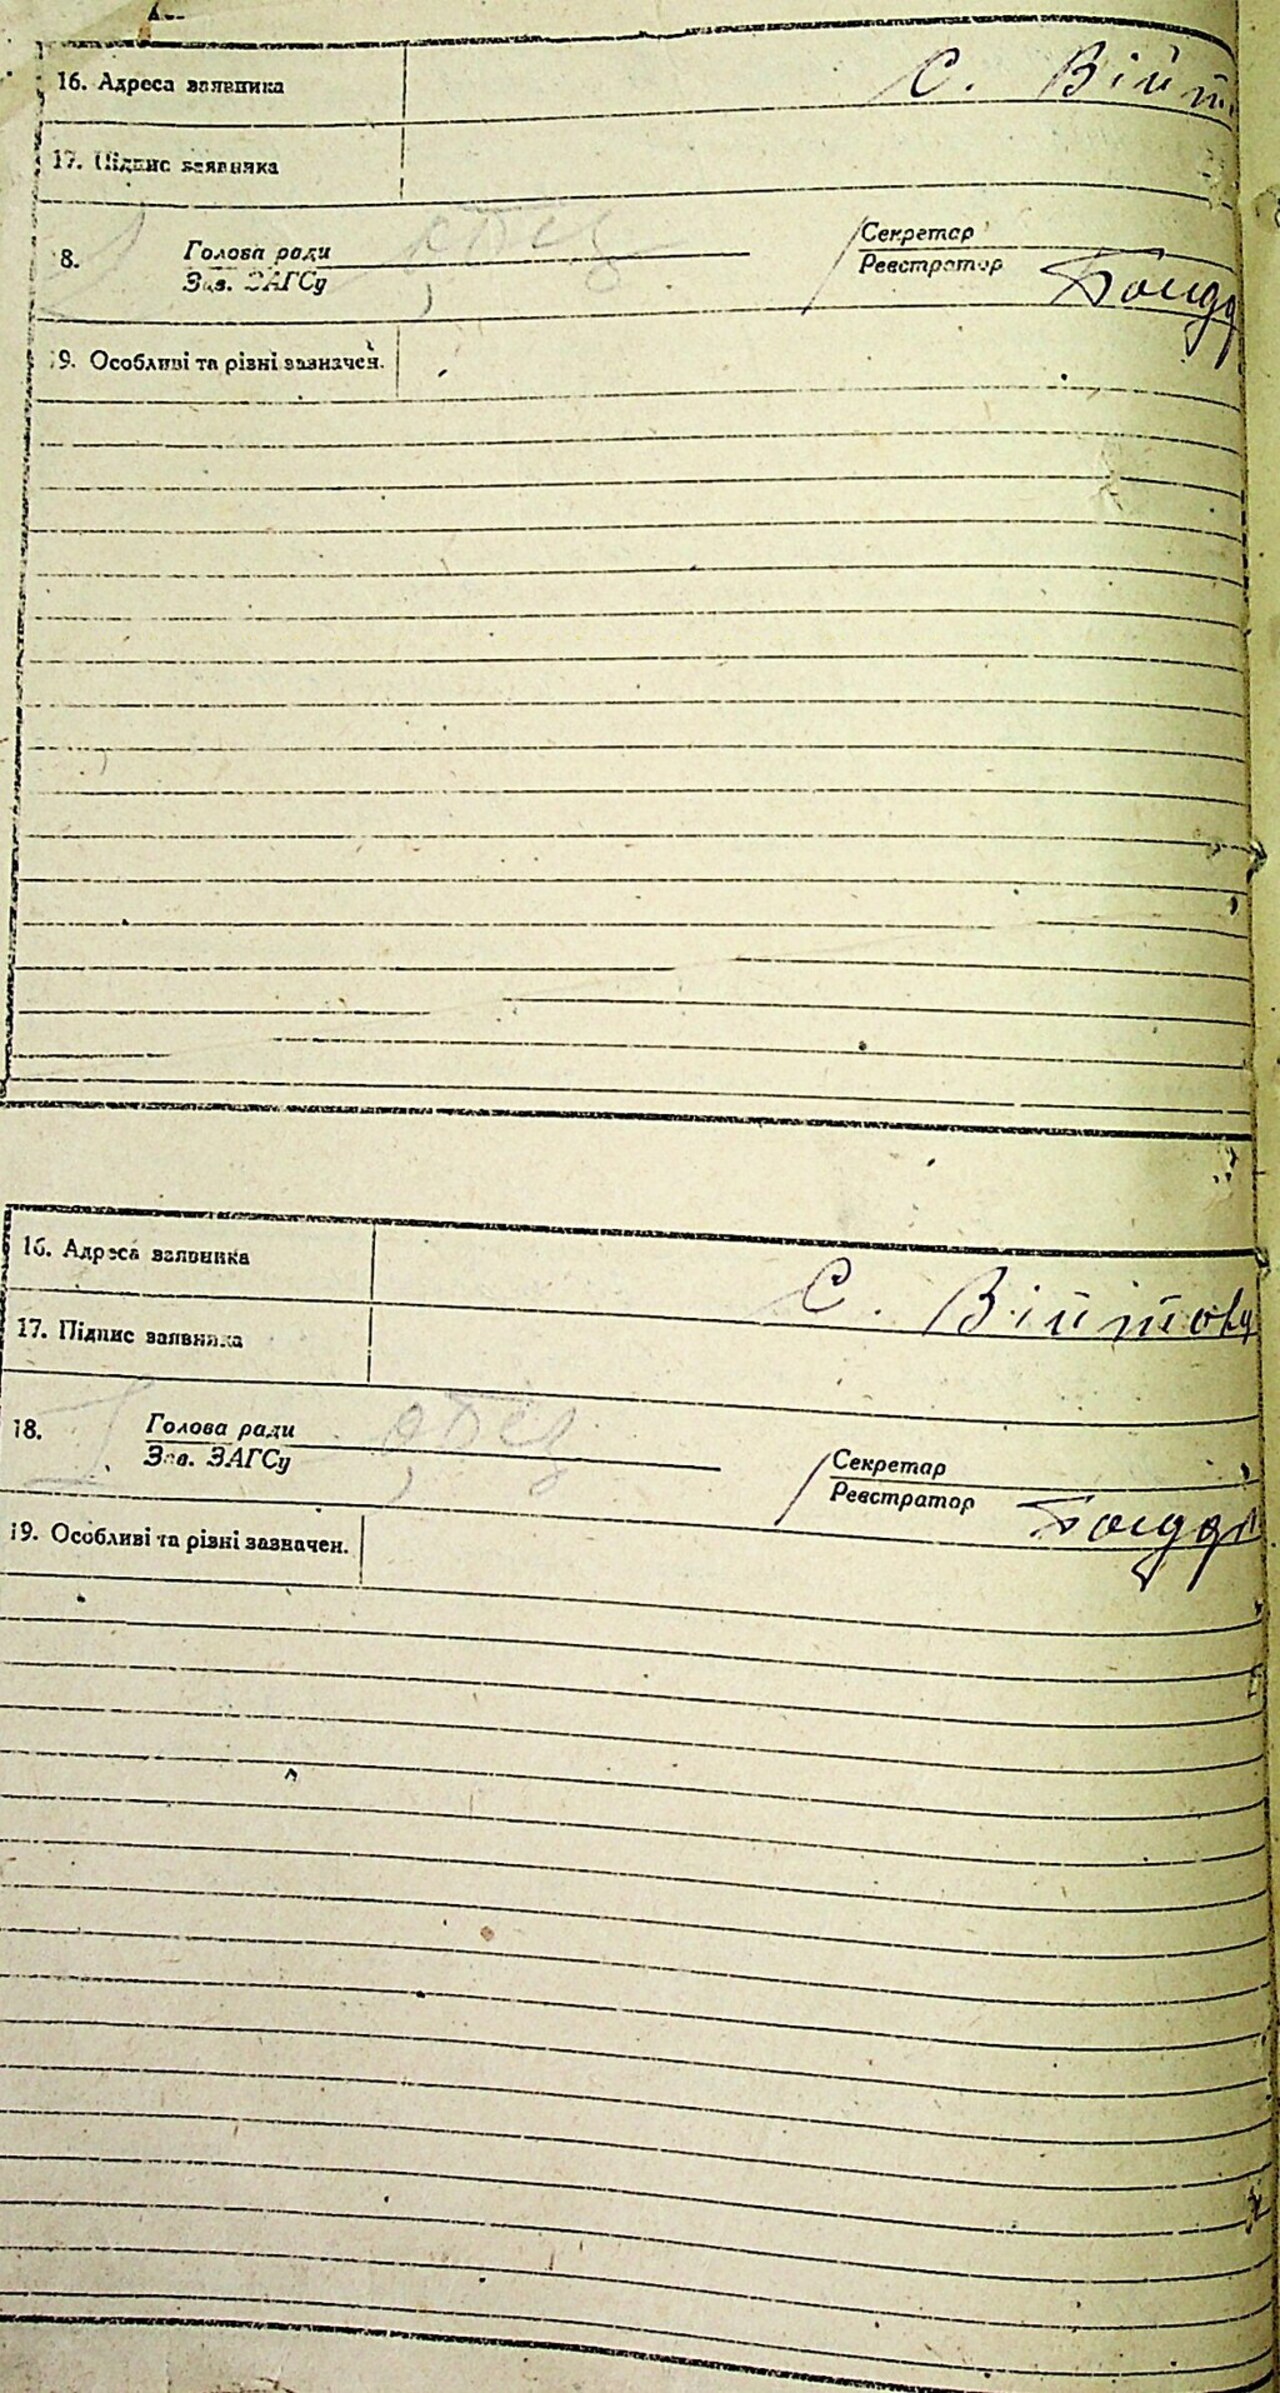 16. Адреса заявника С. Війт
17. Підпис заявника
8. Голова ради Секретар
Зав. ЗАГСу Реєстратор
9. Особливі та різні зазначен.
16. Адреса заявника С. Війтов
17. Підпис заявника
18. Голова ради Секретар
Зав. ЗАГСу Реєстратор
19. Особливі та різні зазначен.